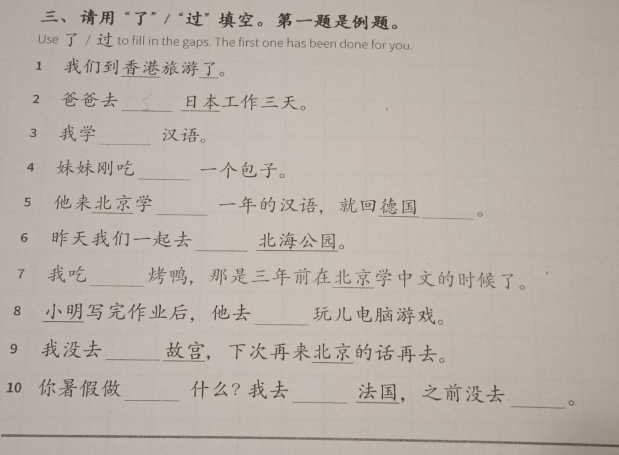 三、请用“了”/“过”填空。第一题是例题。
Use 了 / 过 to fill in the gaps. The first one has been done for you.
1 我们到香港旅游了。
2 爸爸去______日本工作三天。
3 我学______汉语。
4 妹妹刚吃______一个包子。
5 他来北京学______一年的汉语，就回德国______。
6 昨天我们一起去______北海公园。
7 我吃______烤鸭，那是三年前在北京学中文的时候了。
8 小明写完作业后，他去______玩儿电脑游戏。
9 我没去______故宫，下次再来北京的话再去。
10 你暑假做______什么？我去______法国，之前没去______。